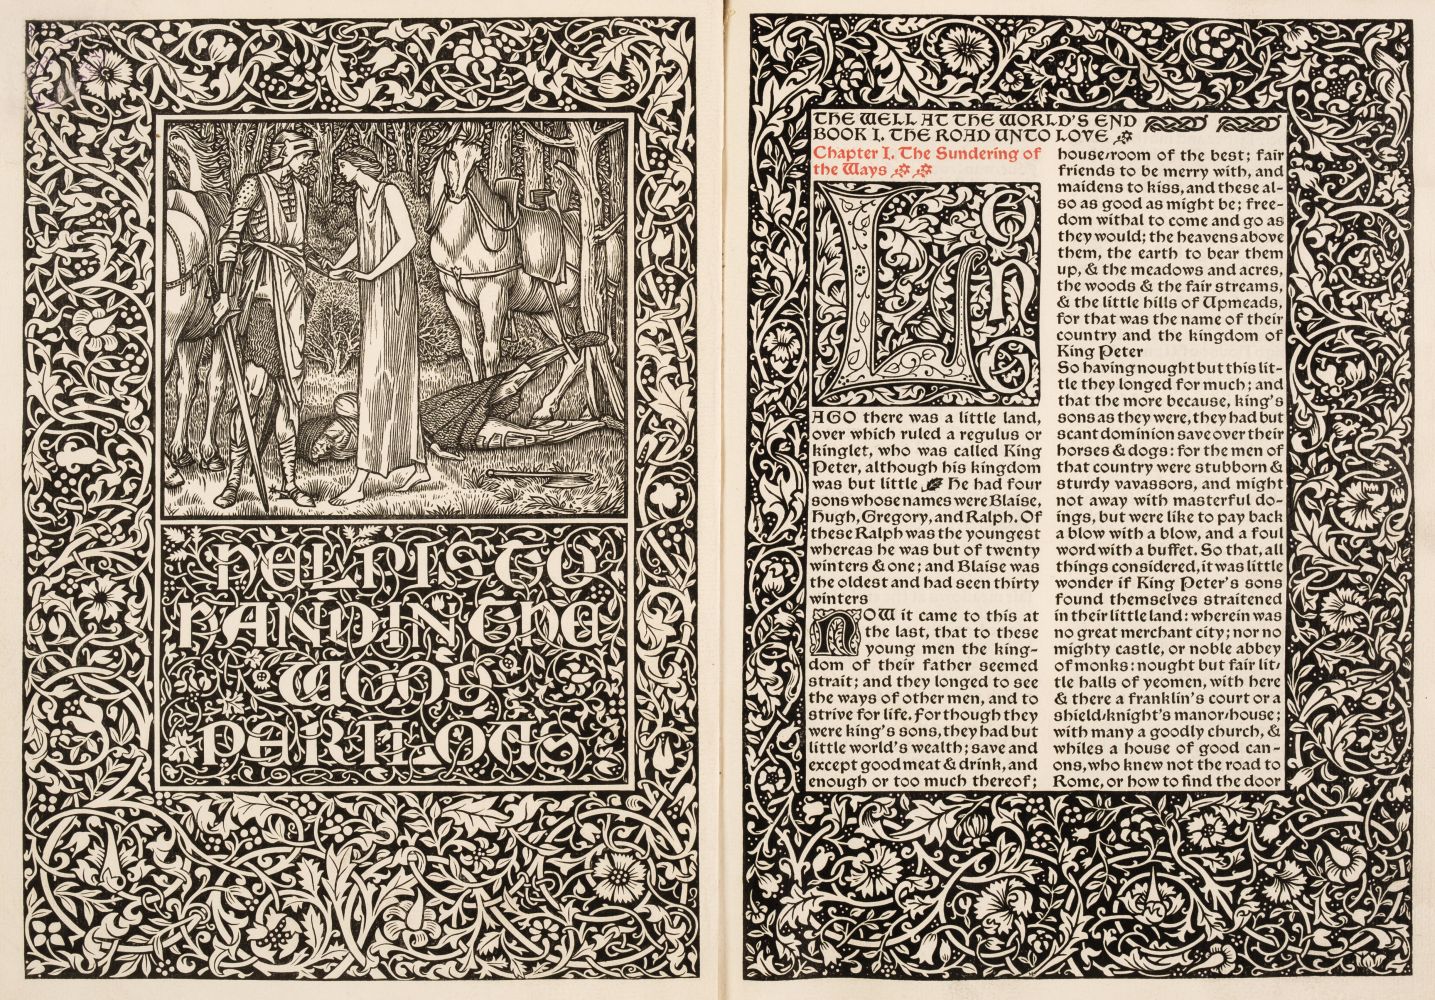 HELP IS TO
HAND IN THE
WOOD
PERILOUS
THE WELL AT THE WORLD'S END
BOOK I. THE ROAD UNTO LOVE
Chapter I. The Sundering of
the Ways
LONG
AGO there was a little land,
over which ruled a regulus or
kinglet, who was called King
Peter, although his kingdom
was but little He had four
sons whose names were Blaise,
Hugh, Gregory, and Ralph. Of
these Ralph was the youngest
whereas he was but of twenty
winters & one; and Blaise was
the oldest and had seen thirty
winters
NOW it came to this at
the last, that to these
young men the king-
dom of their father seemed
strait; and they longed to see
the ways of other men, and to
strive for life. For though they
were king's sons, they had but
little world's wealth; save and
except good meat & drink, and
enough or too much thereof;
house-room of the best; fair
friends to be merry with, and
maidens to kiss, and these al-
so as good as might be; free-
dom withal to come and go as
they would; the heavens above
them, the earth to bear them
up, & the meadows and acres,
the woods & the fair streams,
& the little hills of Upmeads,
for that was the name of their
country and the kingdom of
King Peter
So having nought but this lit-
tle they longed for much; and
that the more because, king's
sons as they were, they had but
scant dominion save over their
horses & dogs: for the men of
that country were stubborn &
sturdy vavassors, and might
not away with masterful do-
ings, but were like to pay back
a blow with a blow, and a foul
word with a buffet. So that, all
things considered, it was little
wonder if King Peter's sons
found themselves straitened
in their little land: wherein was
no great merchant city; nor no
mighty castle, or noble abbey
of monks: nought but fair lit-
tle halls of yeomen, with here
& there a franklin's court or a
shield-knight's manor-house;
with many a goodly church, &
whiles a house of good can-
ons, who knew not the road to
Rome, or how to find the door